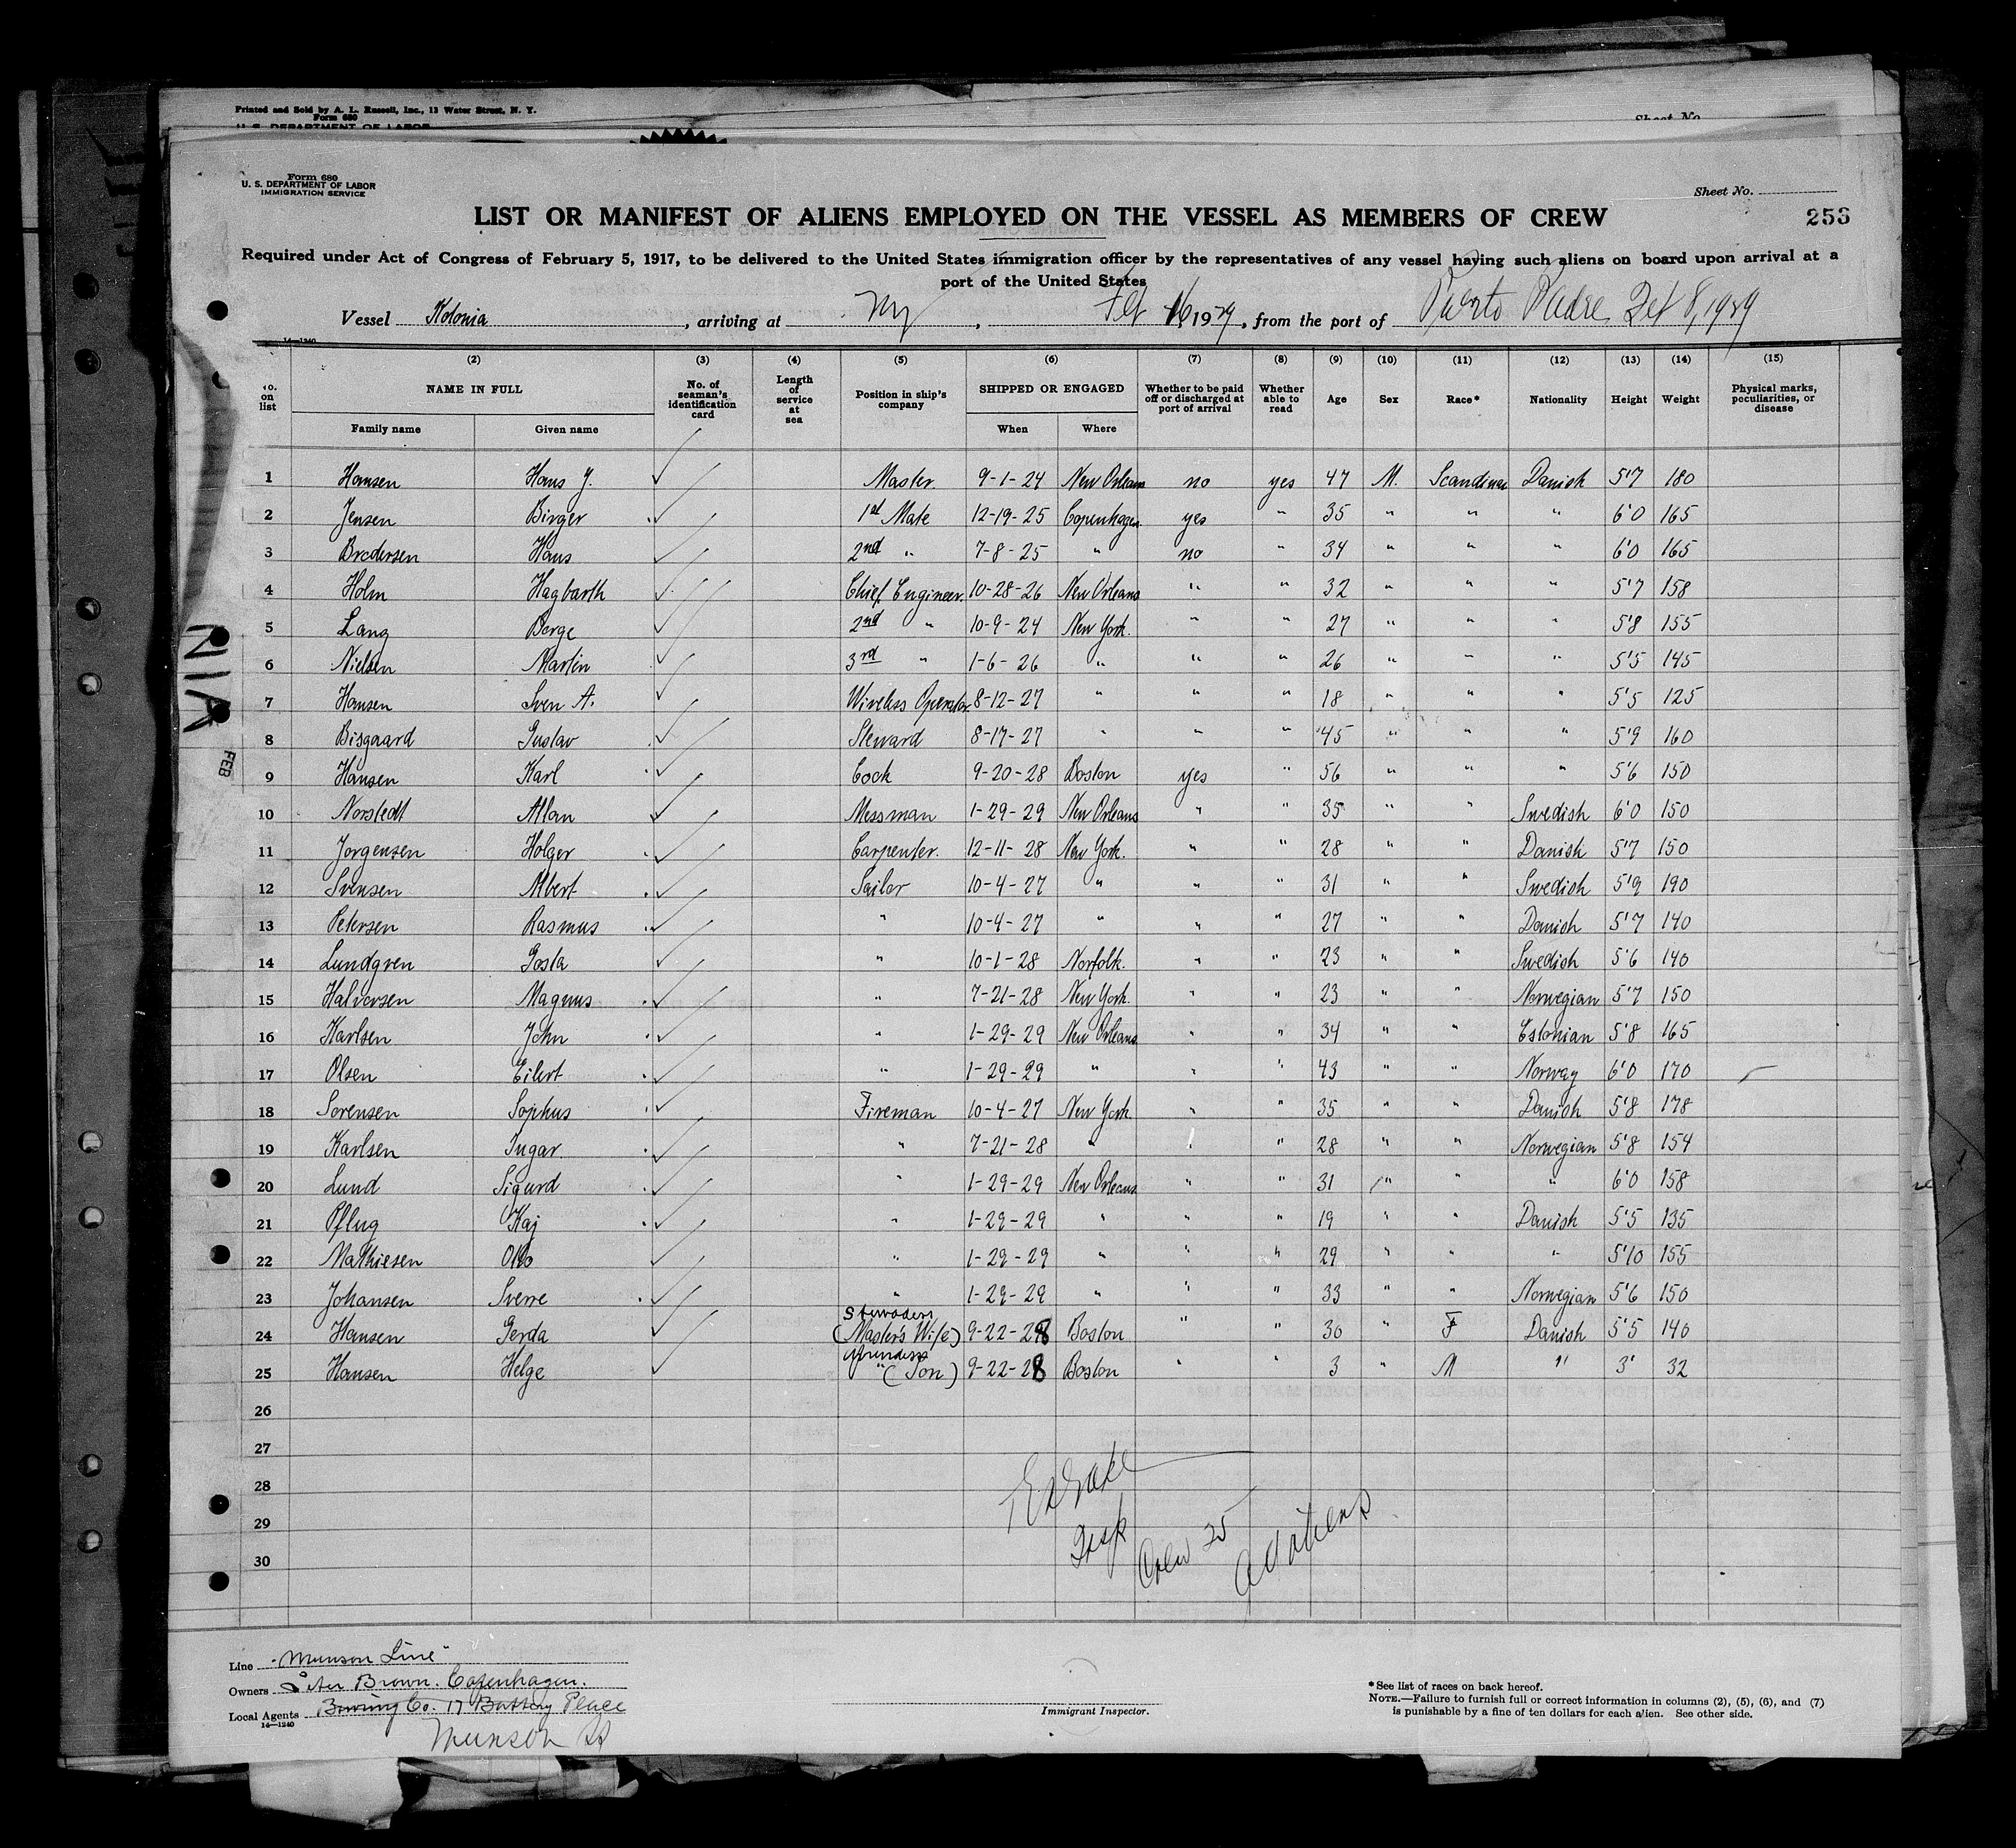 Printed and Sold by A. L. Russell, Inc., 13 Water Street, N. Y.
Form 680
U. S. DEPARTMENT OF LABOR
Sheet No.
Form 680
U. S. DEPARTMENT OF LABOR
IMMIGRATION SERVICE
Sheet No.
LIST OR MANIFEST OF ALIENS EMPLOYED ON THE VESSEL AS MEMBERS OF CREW 253
Required under Act of Congress of February 5, 1917, to be delivered to the United States immigration officer by the representatives of any vessel having such aliens on board upon arrival at a
port of the United States
Vessel Kolonia, arriving at NY, Feb 16 1929, from the port of Puerto Padre Feb 8, 1929
14-1240
(2) (3) (4) (5) (6) (7) (8) (9) (10) (11) (12) (13) (14) (15)
No. on list NAME IN FULL No. of seaman's identification card Length of service at sea Position in ship's company SHIPPED OR ENGAGED Whether to be paid off or discharged at port of arrival Whether able to read Age Sex Race* Nationality Height Weight Physical marks, peculiarities, or disease
Family name Given name When Where
1 Hansen Hans J. Master. 9-1-24 New Orleans no yes 47 M. Scandinav Danish 5'7 180
2 Jensen Birger 1st Mate 12-19-25 Copenhagen yes " 35 " " " 6'0 165
3 Brodersen Hans 2nd " 7-8-25 " no " 34 " " " 6'0 165
4 Holm Hagbarth Chief Engineer. 10-28-26 New Orleans " " 32 " " " 5'7 158
5 Lang Børge 2nd " 10-9-24 New York. " " 27 " " " 5'8 155
6 Nielsen Martin 3rd " 1-6-26 " " " 26 " " " 5'5 145
7 Hansen Sven A. Wireless Operator 8-12-27 " " " 18 " " " 5'5 125
8 Bisgaard Gustav Steward 8-17-27 " " " 45 " " " 5'9 160
9 Hansen Karl Cook 9-20-28 Boston yes " 56 " " " 5'6 150
10 Norstedt Allan Messman 1-29-29 New Orleans " " 35 " " Swedish 6'0 150
11 Jorgensen Holger Carpenter. 12-11-28 New York. " " 28 " " Danish 5'7 150
12 Svensen Albert Sailor 10-4-27 " " " 31 " " Swedish 5'9 190
13 Petersen Rasmus " 10-4-27 " " " 27 " " Danish 5'7 140
14 Lundgren Gosta " 10-1-28 Norfolk. " " 23 " " Swedish 5'6 140
15 Halvorsen Magnus " 7-21-28 New York. " " 23 " " Norwegian 5'7 150
16 Karlsen John " 1-29-29 New Orleans " " 34 " " Estonian 5'8 165
17 Olsen Eilert " 1-29-29 " " " 43 " " Norway 6'0 170
18 Sorensen Sophus Fireman 10-4-27 New York " " 35 " " Danish 5'8 178
19 Karlsen Ingar. " 7-21-28 " " " 28 " " Norwegian 5'8 154
20 Lund Sigurd " 1-29-29 New Orleans " " 31 " " " 6'0 158
21 Pflug Kaj " 1-29-29 " " " 19 " " Danish 5'5 135
22 Mathiesen Otto " 1-29-29 " " " 29 " " " 5'10 155
23 Johansen Sverre " 1-29-29 " " " 33 " " Norwegian 5'6 150
24 Hansen Gerda (Master's Wife) 9-22-28 Boston " " 30 " F Danish 5'5 140
25 Hansen Helge " (Son) 9-22-28 Boston " " 3 " M " 3' 32
26
27
28
29
30
Insp
Crew 25
all aliens
NIA
FEB
Line "Munson Line"
Owners Peter Brown. Copenhagen.
Local Agents Bowring Co. 17 Battery Place
14-1240
Munson SS
Immigrant Inspector.
*See list of races on back hereof.
NOTE.—Failure to furnish full or correct information in columns (2), (5), (6), and (7)
is punishable by a fine of ten dollars for each alien. See other side.